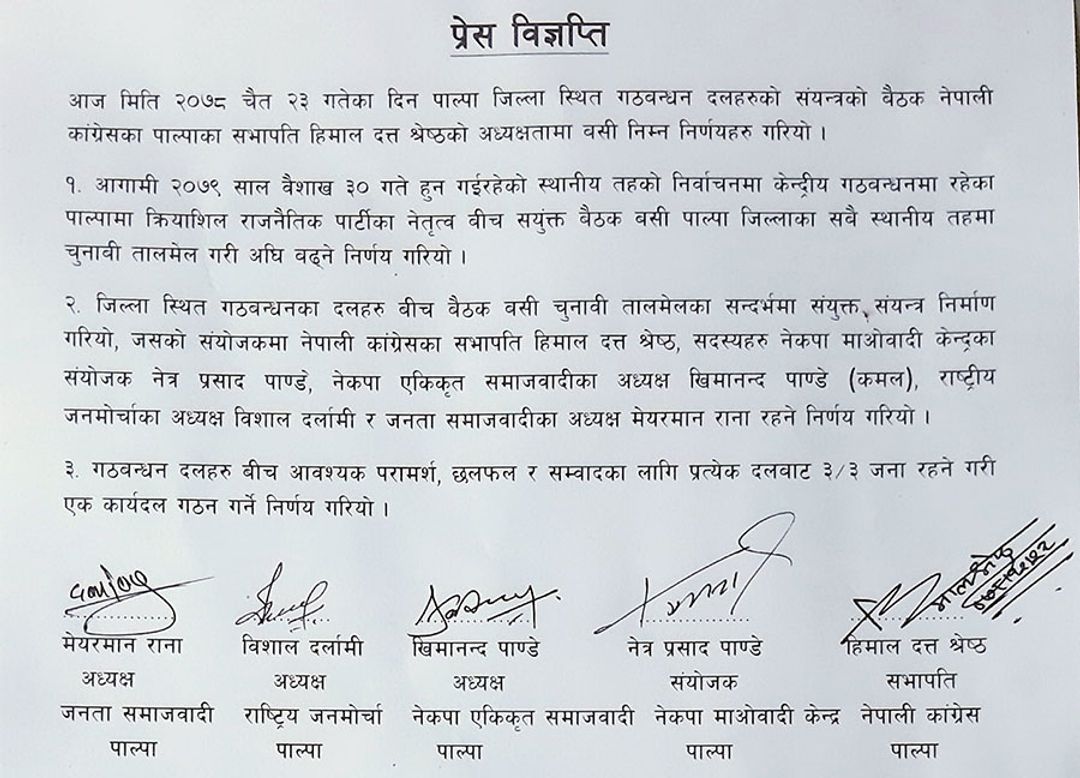 प्रेस विज्ञप्ति
आज मिति २०७८ चैत २३ गतेका दिन पाल्पा जिल्ला स्थित गठवन्धन दलहरुको संयन्त्रको बैठक नेपाली
कांग्रेसका पाल्पाका सभापति हिमाल दत्त श्रेष्ठको अध्यक्षतामा वसी निम्न निर्णयहरु गरियो ।
१. आगामी २०७९ साल वैशाख ३० गते हुन गईरहेको स्थानीय तहको निर्वाचनमा केन्द्रीय गठवन्धनमा रहेका
पाल्पामा क्रियाशिल राजनैतिक पार्टीका नेतृत्व वीच सयुंक्त बैठक वसी पाल्पा जिल्लाका सवै स्थानीय तहमा
चुनावी तालमेल गरी अघि वढ्ने निर्णय गरियो ।
२. जिल्ला स्थित गठवन्धनका दलहरु वीच बैठक वसी चुनावी तालमेलका सन्दर्भमा संयुक्त, संयन्त्र निर्माण
गरियो, जसको संयोजकमा नेपाली कांग्रेसका सभापति हिमाल दत्त श्रेष्ठ, सदस्यहरु नेकपा माओवादी केन्द्रका
संयोजक नेत्र प्रसाद पाण्डे, नेकपा एकिकृत समाजवादीका अध्यक्ष खिमानन्द पाण्डे (कमल), राष्ट्रीय
जनमोर्चाका अध्यक्ष विशाल दर्लामी र जनता समाजवादीका अध्यक्ष मेयरमान राना रहने निर्णय गरियो ।
३. गठवन्धन दलहरु वीच आवश्यक परामर्श, छलफल र सम्वादका लागि प्रत्येक दलवाट ३/३ जना रहने गरी
एक कार्यदल गठन गर्ने निर्णय गरियो ।
मेयरमान राना विशाल दर्लामी खिमानन्द पाण्डे नेत्र प्रसाद पाण्डे हिमाल दत्त श्रेष्ठ
अध्यक्ष अध्यक्ष अध्यक्ष संयोजक सभापति
जनता समाजवादी राष्ट्रिय जनमोर्चा नेकपा एकिकृत समाजवादी नेकपा माओवादी केन्द्र नेपाली कांग्रेस
पाल्पा पाल्पा पाल्पा पाल्पा पाल्पा